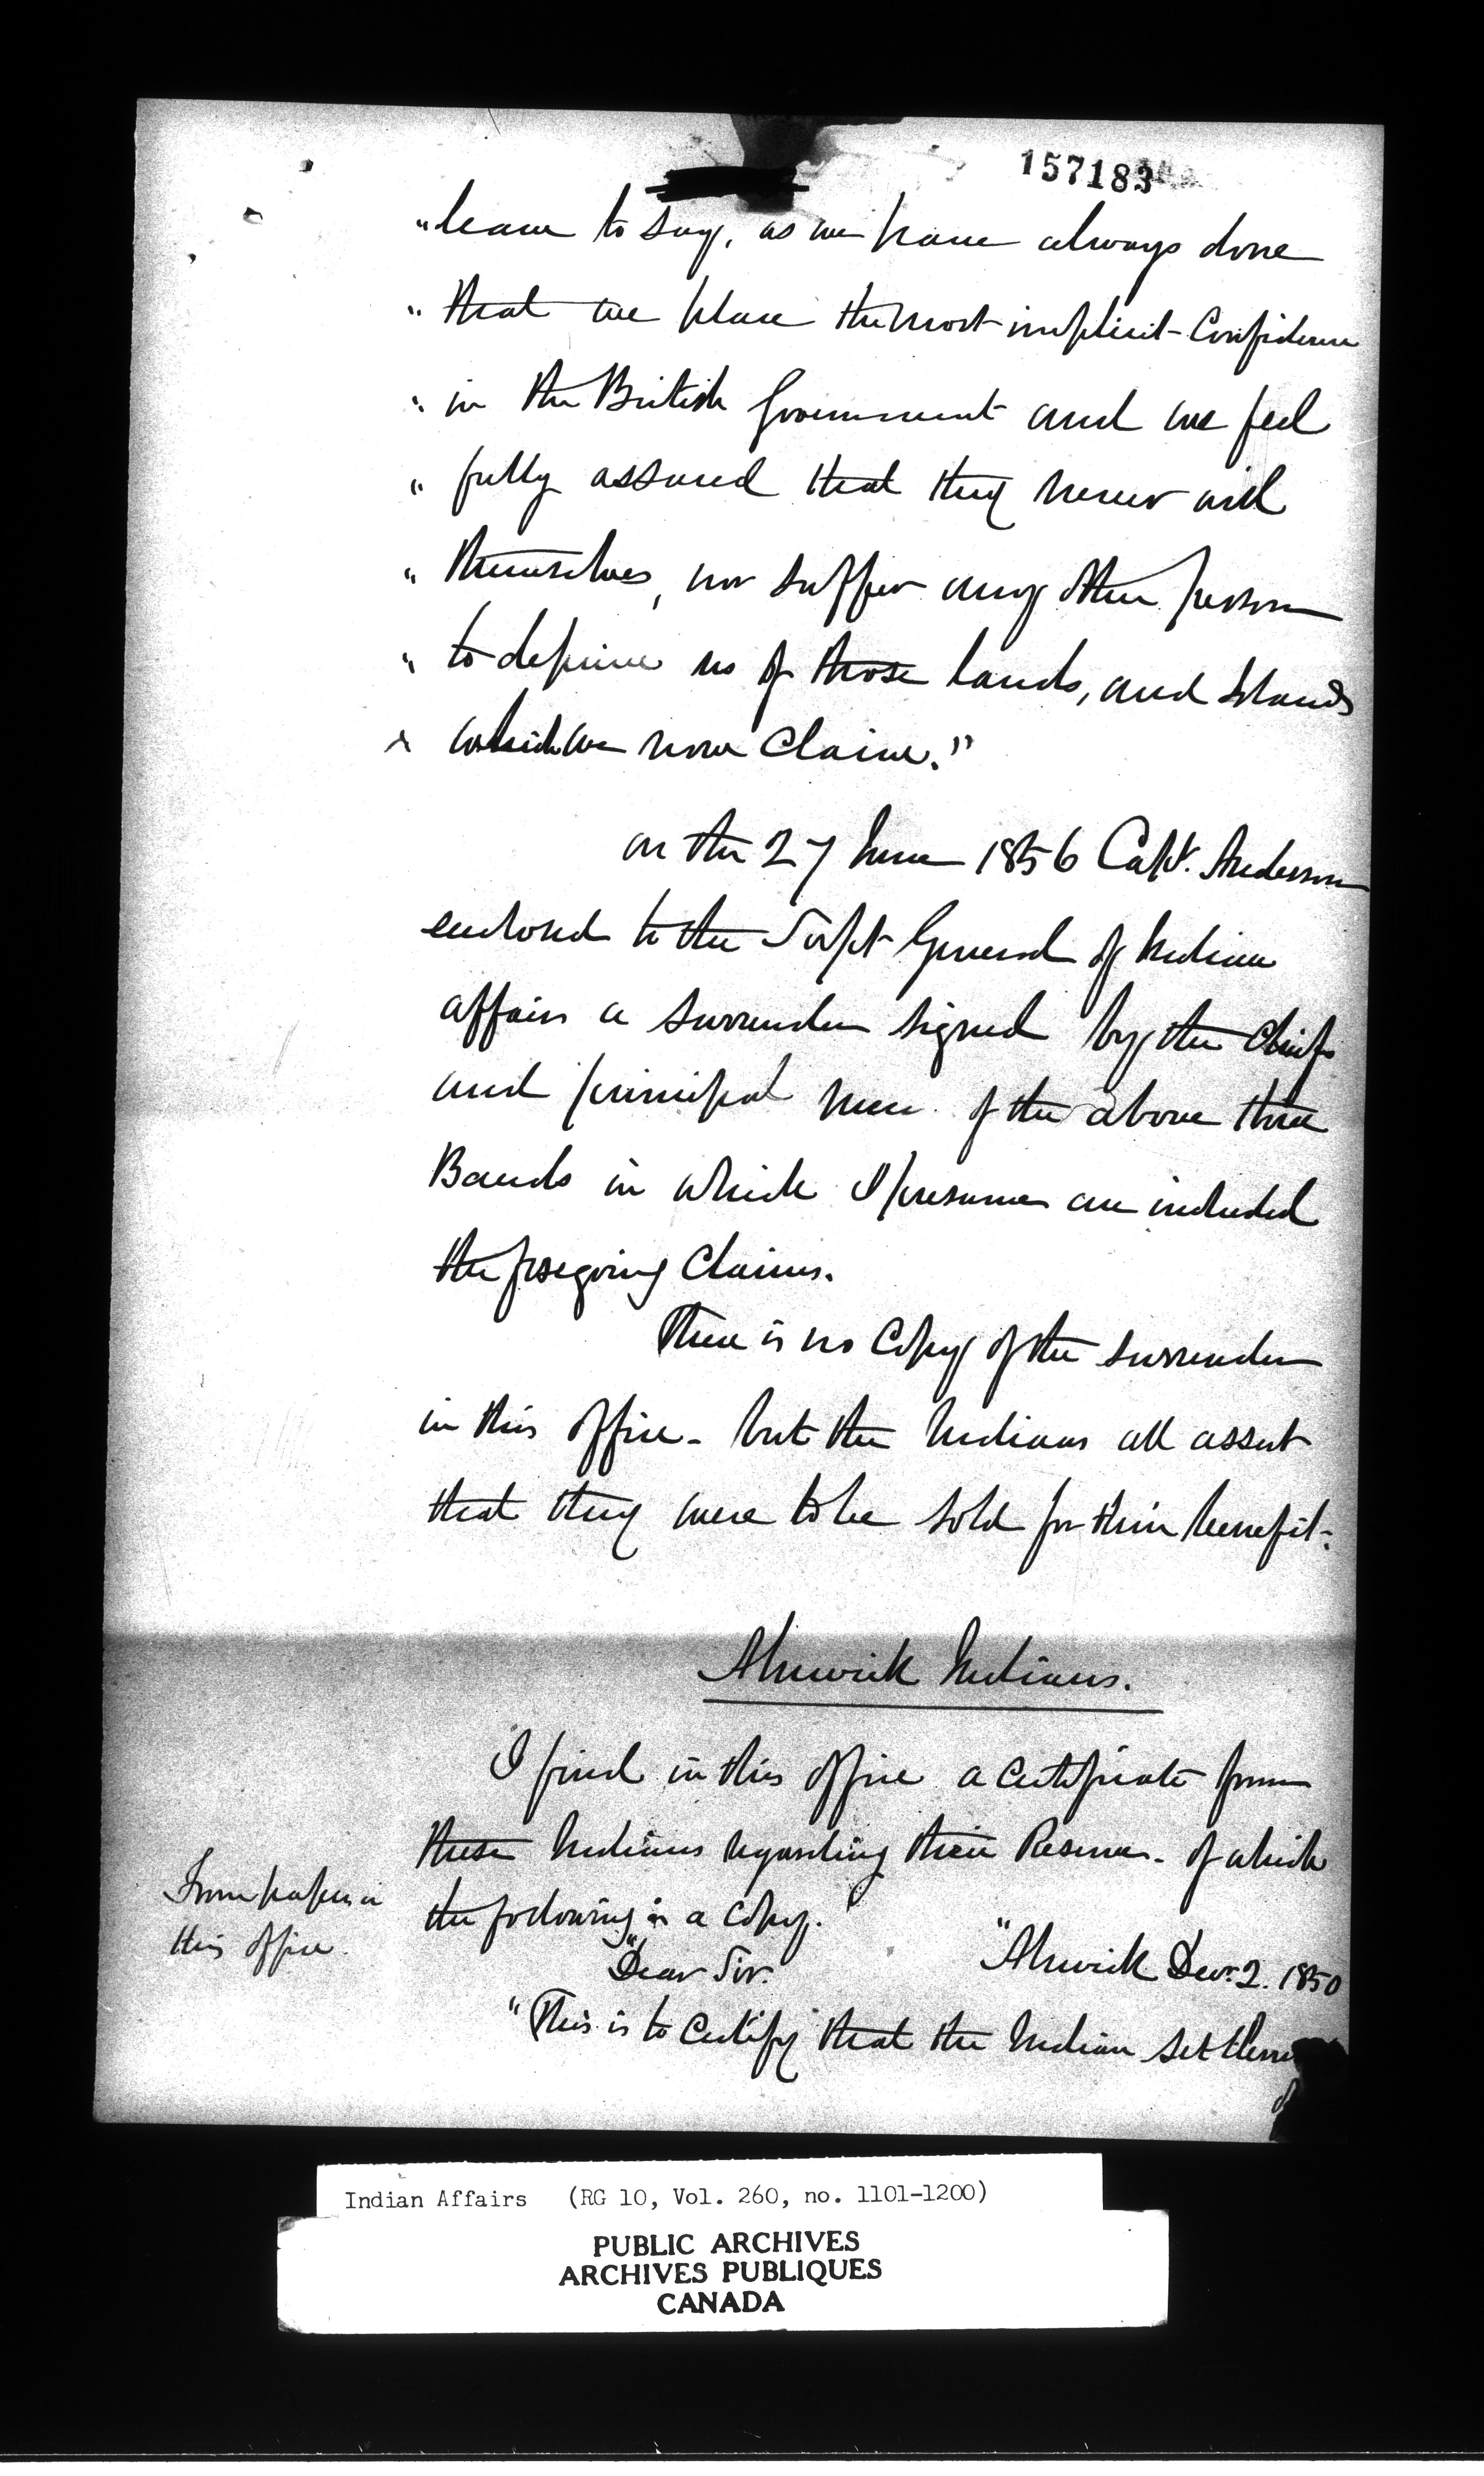 157183
"leave to say, as we have always done
" that we place the most implicit Confidence
" in the British Government and we feel
" fully assured that they never will
" themselves, nor suffer any other person
" to deprive us of those lands, and Islands
" which we now Claim."
on the 27 June 1856 Capt. Anderson
enclosed to the Supt General of Indian
affairs a surrender signed by the Chiefs
and principal men of the above three
Bands in which I presume are included
the foregoing Claims.
There is no Copy of the surrender
in this office - but the Indians all assert
that they were to be sold for their benefit.
Alnwick Indians.
I find in this office a Certificate from
these Indians regarding their Reserve - of which
the following is a copy.
From papers in
this office.
"Alnwick Decr. 2. 1850
"Dear Sir.
"This is to Certify that the Indian
Indian Affairs (RG 10, Vol. 260, no. 1101-1200)
PUBLIC ARCHIVES
ARCHIVES PUBLIQUES
CANADA